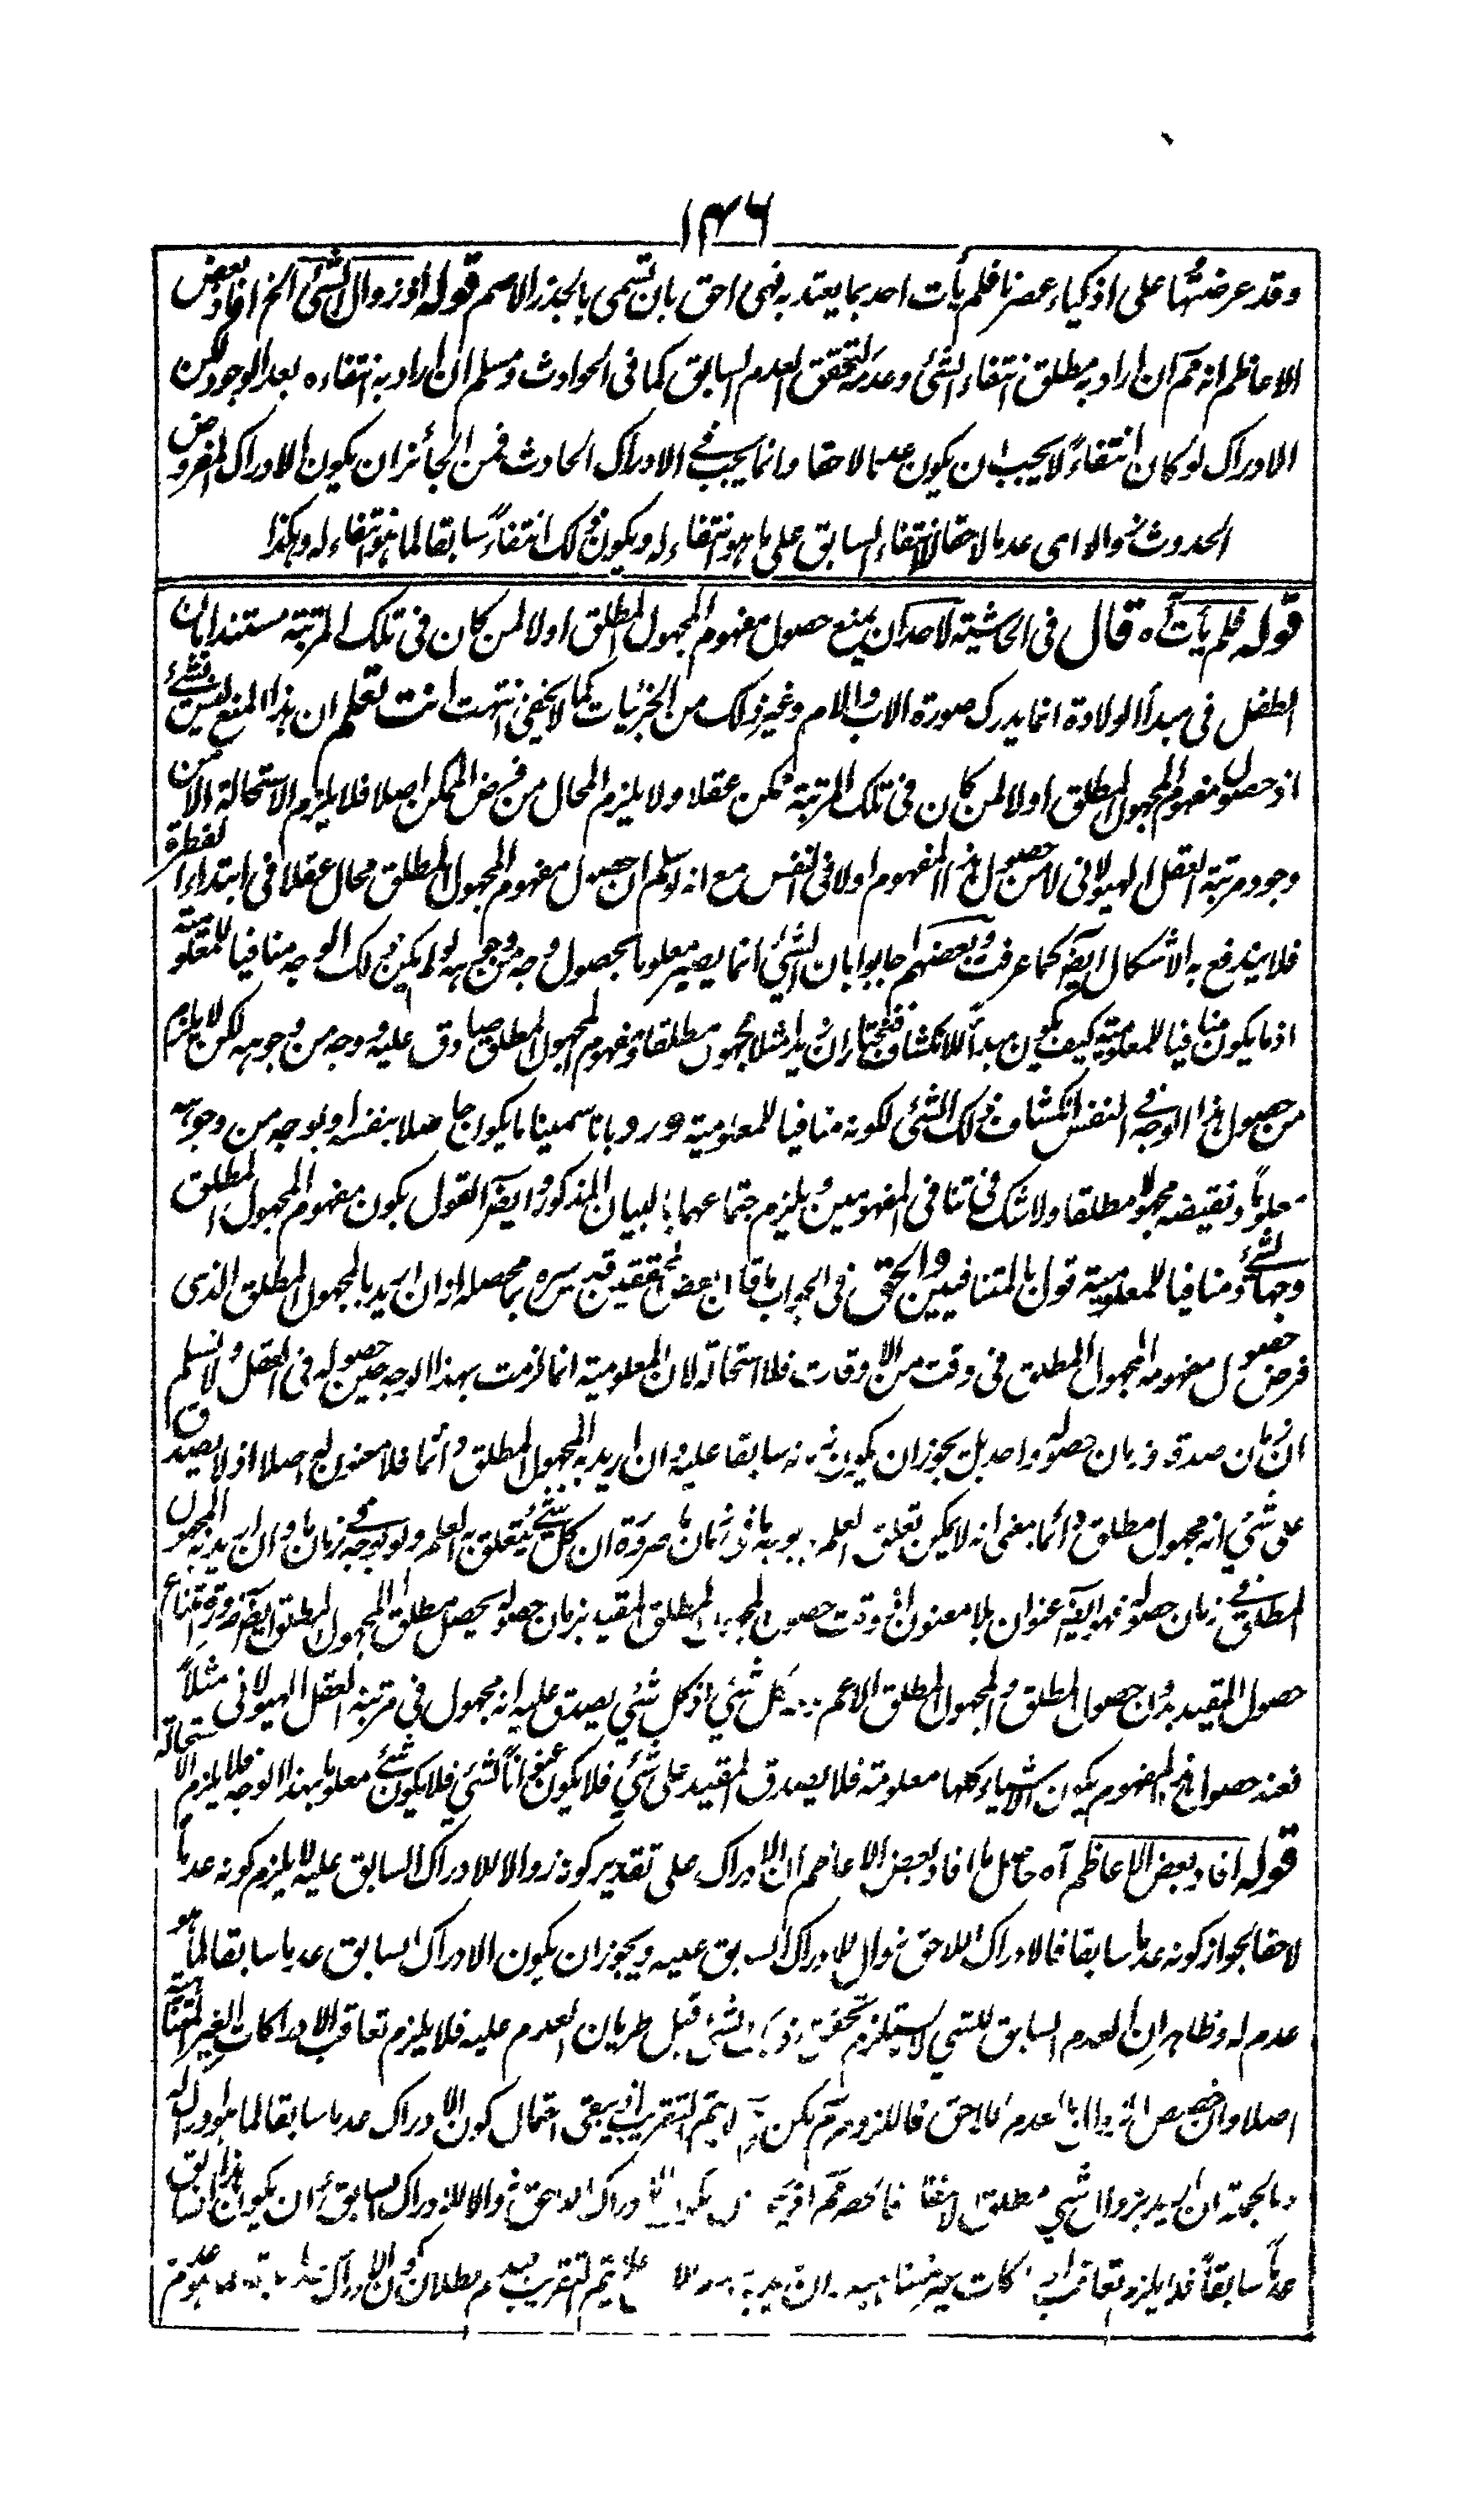 ۱۴۶
وقد عرضتها على اذكياء عصرنا فلم يأت احد بما يعتد به فهى احق بان تسمى بالجذر الاصم قوله اوزوال الشئ الخ افاد بعض
الاعاظم انه تم ان اراد به مطلق انتفاء الشئ وعدمه لتحقق العدم السابق كما فى الحوادث ومسلم ان اراد به انتفاءه بعد الوجود لكن
الادراك لو كان انتفاءً لا يجب ان يكون عدما لاحقا وانما يجب فى الادراك الحادث فمن الجائز ان يكون الادراك المفروض
الحدوث زوالا اى عدما لاحقا لانتفاء السابق على ما هو انتفاء له ويكون ذلك انتفاءً سابقا لما هو انتفاء له وهكذا
قوله فلم يأت آه قال فى الحاشية لاحد ان يمنع حصول مفهوم المجهول المطلق اولا لمن كان فى تلك المرتبة مستندا بان
الطفل فى مبدأ الولادة انما يدرك صورة الاب والام وغير ذلك من الجزئيات كما لا يخفى انتهت انت تعلم ان هذا المنع ليس بشئ
اذ حصول مفهوم المجهول المطلق اولا لمن كان فى تلك المرتبة ممكن عقلا ولا يلزم المحال من فرض الممكن اصلا فلا يلزم الاستحالة الا من
وجود مرتبة العقل الهيولانى لا من حصول هذا المفهوم اولا فى النفس مع انه لو سلم ان حصول مفهوم المجهول المطلق محال عقلا فى ابتداء الفطرة
فلا يندفع به الاشكال ايضا كما عرفت وبعضهم اجابوا بان الشئ انما يصير معلوما بحصول وجه من وجوهه لو لم يكن ذلك الوجه منافيا للمعلومية
اذ ما يكون منافيا للمعلومية كيف يكون مبدأ للانكشاف فنختار ان زيدا مثلا مجهول مطلقا ومفهوم المجهول المطلق صادق عليه ووجه من وجوهه لكن لا يلزم
من حصول هذا الوجه فى النفس انكشاف ذلك الشئ لكونه منافيا للمعلومية ورد بانا سمينا ما يكون حاصلا بنفسه او بوجه من وجوهه
معلوماً ونقيضه مجهولا مطلقا ولا شك فى تنافى المفهومين ويلزم اجتماعهما بالبيان المذكور وايضا القول بكون مفهوم المجهول المطلق
وجها لشئ ومنافيا للمعلومية قول بالمتنافيين والحق فى الجواب ما قال بعض المحققين قدس سره بما محصله انه ان اريد بالمجهول المطلق الذى
فرض حصول مفهومه المجهول المطلق فى وقت من الاوقات فلا استحالة لان المعلومية انما لزمت بهذا الوجه حين حصوله فى العقل ولا نسلم
ان زمان صدقه وزمان حصوله واحد بل يجوز ان يكون زمانه سابقا عليه وان اريد به المجهول المطلق دائما فلا معنون له اصلا اذ لا يصدق
على شئ انه مجهول مطلق دائما بمعنى انه لا يمكن تعلق العلم به بوجه ما فى زمان ما ضرورة ان كل شئ يتعلق به العلم ولو بوجه فى زمان ما وان اريد به المجهول
المطلق فى زمان حصوله فهو ايضا عنوان بلا معنون اذ وقت حصول المجهول المطلق المقيد بزمان حصوله يحصل مطلق المجهول المطلق ايضا ضرورة امتناع
حصول المقيد بدون حصول المطلق والمجهول المطلق الاعم لكل شئ اذ كل شئ يصدق عليه انه مجهول فى مرتبة العقل الهيولانى مثلاً
فعند حصول هذا المفهوم يكون الاشياء كلها معلومة فلا يصدق المقيد على شئ فلا يكون عنوانا لشئ فلا يكون شئ معلوما بهذا الوجه فلا يلزم الاستحالة
قوله افاد بعض الاعاظم آه حاصل ما افاد بعض الاعاظم ان الادراك على تقدير كونه زوالا للادراك السابق عليه لا يلزم كونه عدما
لاحقا لجواز كونه عدما سابقا فالادراك اللاحق زوال للادراك السابق عليه ويجوز ان يكون الادراك السابق عدما سابقا لما هو
عدم له وظاهر ان العدم السابق للشئ لا يستلزم تحقق ذلك الشئ قبل طريان العدم عليه فلا يلزم تعاقب الادراكات الغير المتناهية
اصلا وان خصص الزوال بالعدم اللاحق فاللزوم تم لكن لا يتم التقريب اذ يبقى احتمال كون الادراك عدما سابقا لما هو ادراك له
وبالجملة ان اريد بزوال شئ مطلق الانتفاء فالحصر تم اذ يجوز ان يكون الادراك اللاحق زوالا للادراك السابق وان يكون هذا السابق
عدماً سابقاً فلا يلزم تعاقب ادراكات غير متناهية وان اريد به لا يتم التقريب لعدم بطلان كون الادراك